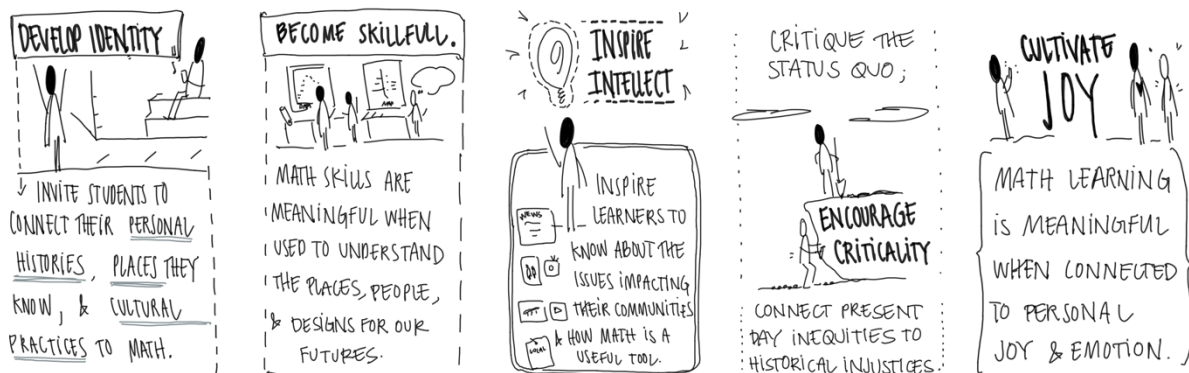 DEVELOP IDENTITY
INVITE STUDENTS TO
CONNECT THEIR PERSONAL
HISTORIES, PLACES THEY
KNOW, & CULTURAL
PRACTICES TO MATH.
BECOME SKILLFULL.
MATH SKILLS ARE
MEANINGFUL WHEN
USED TO UNDERSTAND
THE PLACES, PEOPLE,
& DESIGNS FOR OUR
FUTURES.
INSPIRE
INTELLECT
NEWS
LOCAL
INSPIRE
LEARNERS TO
KNOW ABOUT THE
ISSUES IMPACTING
THEIR COMMUNITIES
& HOW MATH IS A
USEFUL TOOL.
CRITIQUE THE
STATUS QUO;
ENCOURAGE
CRITICALITY
CONNECT PRESENT
DAY INEQUITIES TO
HISTORICAL INJUSTICES.
CULTIVATE
JOY
MATH LEARNING
IS MEANINGFUL
WHEN CONNECTED
TO PERSONAL
JOY & EMOTION.